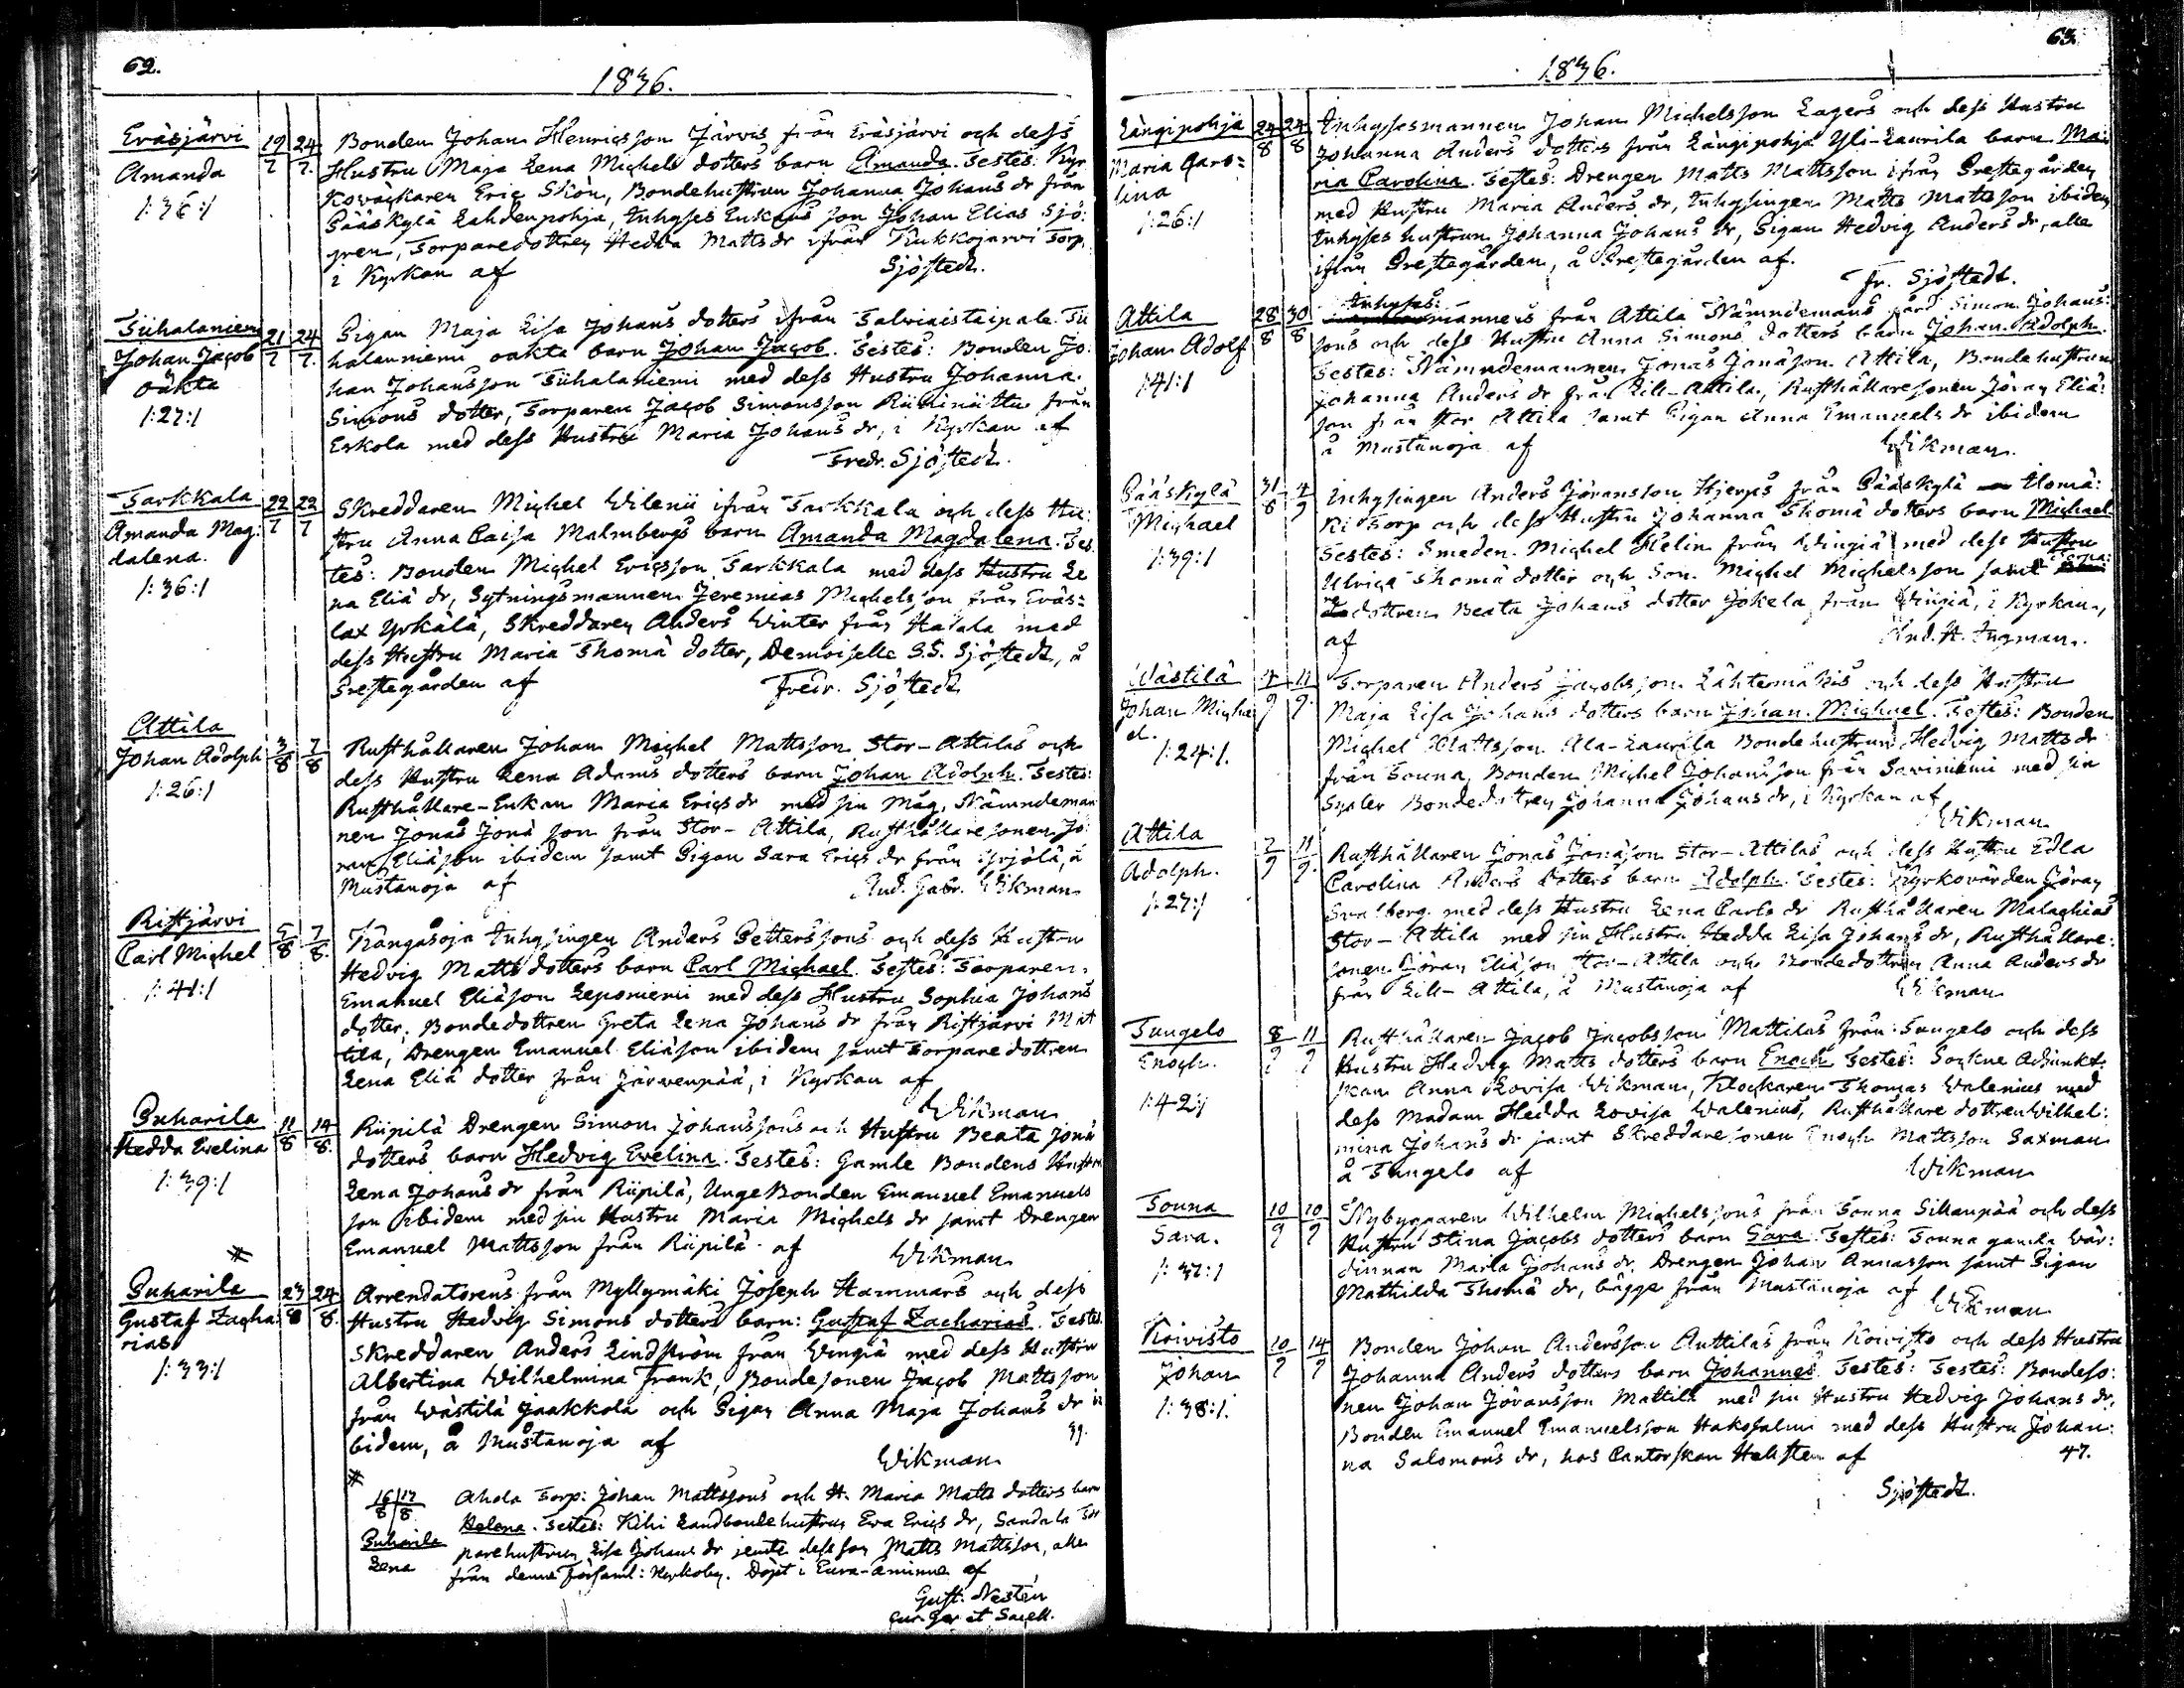 62.
1836.
Eräsjärvi
Amanda
1:36:1
19/7 24/7.
Bonden Johan Henricsson Järvis från Eräsjärvi och dess
Hustru Maja Lena Michels dotters barn Amanda. Testes: Kyr
kowäckaren Eric Skön, Bondehustrun Johanna Johans dr från
Pääskylä Lahdenpohja, Inhyses Enkans son Johan Elias Sjö:
gren, Torparedottren Hedda Matts dr ifrån Kukkojärvi Torp,
i Kyrkan af Sjöstedt.
Tiihalaniemi
Johan Jacob
oäkta
1:27:1
21/7 24/7.
Pigan Maja Lisa Johans dotters ifrån Talwiaistaipale Tii
halanniemi oäkta barn Johan Jacob. Testes: Bonden Jo:
han Johansson Tiihalaniemi med dess Hustru Johanna
Simons dotter, Torparen Jacob Simonsson Riihiniittu från
Eskola med dess Hustru Maria Johans dr, i Kyrkan af
Fredr. Sjöstedt.
Tarkkala
Amanda Mag:
dalena.
1:36:1
22/7 22/7
Skreddaren Michel Wilenii ifrån Tarkkala och dess Hu:
stru Anna Caisa Malmbergs barn Amanda Magdalena. Tes
tes: Bonden Michel Ericsson Tarkkala med dess Hustru Le
na Eliä dr, Sytningsmannen Jeremias Michelsson från Eräs:
lax Yrkälä, Skreddaren Anders Winter från Hatala med
dess Hustru Maria Thomä dotter, Demoiselle S.S. Sjöstedt, å
Prestegården af Fredr. Sjöstedt
Attila
Johan Adolph
1:26:1
3/8 7/8
Rusthållaren Johan Michel Mattsson Stor-Attilas och
dess Hustru Lena Adams dotters barn Johan Adolph. Testes:
Rusthållare-Enkan Maria Erics dr med sin Måg, Nämndeman
nen Jonas Jonä son från Stor-Attila, Rusthållaresonen Jö
ran Eliäson ibidem samt Pigan Sara Erics dr från Yrjölä, å
Mustanoja af And. Gabr. Wikman
Ristjärvi
Carl Michel
1:41:1
5/8 7/8.
Kangasoja Inhysingen Anders Petterssons och dess Hustru
Hedvig Matts dotters barn Carl Michael. Testes: Torparen
Emanuel Eliäson Leponiemi med dess Hustru Sophia Johans
dotter, Bondedottren Greta Lena Johans dr från Ristjärvi Mat
tila, Drengen Emanuel Eliäson ibidem samt Torparedottren
Lena Eliä dotter från Järwenpää, i Kyrkan af
Wikman
Puharila
Hedda Evelina
1:39:1
11/8 14/8.
Riipilä Drengen Simon Johanssons och Hustru Beata Jonä
dotters barn Hedvig Evelina. Testes: Gamle Bondens Hustru
Lena Johans dr från Riipilä, Unge Bonden Emanuel Emanuels
son ibidem med sin Hustru Maria Michels dr samt Drengen
Emanuel Mattsson från Riipilä af Wikman
#
Puharila
Gustaf Zacha:
rias
1:33:1
23/8 24/8.
Arrendatorens från Myllymäki Joseph Hammars och dess
Hustru Hedvig Simons dotters barn: Gustaf Zacharias. Testes
Skreddaren Anders Lindström från Wingiä med dess Hustru
Albertina Wilhelmina Frank, Bondesonen Jacob Mattsson
från Wästilä Jaakkola och Pigan Anna Maja Johans dr i
bidem, å Mustanoja af 39.
Wikman
#
16/8 17/8
Puharila
Lena
Ahola Torp: Johan Mattssons och H. Maria Matts dotters barn
Helena. Testes: Kihi Landbondehustrun Eva Erics dr, Sandala Tor
parehustrun Lisa Johans dr jemte dess son Matts Mattsson, alla
från denne Församl: Kyrkoby. Döpt i Eura-åminne af
Gust. Nestén
63.
1836.
Längipohja
Maria Caro:
lina
1:26:1
24/8 24/8
Inhysesmannen Johan Michelsson Lagers och dess Hustru
Johanna Anders dotters från Längipohja Yli-Laurila barn Ma:
ria Carolina. Testes: Drengen Matts Mattsson ifrån Prestegården
med Hustru Maria Anders dr, Inhysingen Matts Mattsson ibidem
Inhyses hustrun Johanna Johans dr, Pigan Hedvig Anders dr, alle
ifrån Prestegården, å Prestegården af.
Fr. Sjöstedt.
Attila
Johan Adolf
1:41:1
28/8 30/8
Inhyses:
mannens från Attila Nämndemans gård Simon Johans:
sons och dess Hustru Anna Simons dotters barn Johan Adolph
Testes: Nämndemannen Jonas Jonäson Attila, Bondehustrun
Johanna Anders dr från Lill-Attila, Rusthållaresonen Jöran Eliä:
son från Stor Attila samt Pigan Anna Emanuels dr ibidem
å Mustanoja af Wikman.
Pääskylä
Michael
1:39:1
31/8 4/9
Inhysingen Anders Jöransson Hjerpes från Pääskylä Ilomä:
ki Torp och dess Hustru Johanna Thomä dotters barn Michael
Testes: Smeden Michel Helin från Wingiä med dess Hustru
Ulrica Thomä dotter och Son Michel Michelsson samt Torpa:
re dottren Beata Johans dotter Jokela från Wingiä, i Kyrkan,
af And. H. Ingman.
Wästilä
Johan Micha
el.
1:24:1.
4/9 11/9.
Torparen Anders Jacobsson Lähtemäkis och dess Hustru
Maja Lisa Johans dotters barn Johan Michael. Testes: Bonden
Michel Mattsson Ala-Laurila Bondehustrun Hedvig Matts dr
från Touna, Bonden Michel Johansson från Saviniemi med sin
Syster Bondedottren Johanna Johans dr, i Kyrkan af
Wikman
Attila
Adolph.
1:27:1
7/9 11/9.
Rusthållaren Jonas Jonäson Stor-Attilas och dess Hustru Edla
Carolina Anders dotters barn Adolph. Testes: Kyrkovärden Jöran
Svalberg med dess Hustru Lena Carls dr Rusthållaren Malachias
Stor-Attila med sin Hustru Hedda Lisa Johans dr, Rusthållare:
sonen Jöran Eliäson Stor-Attila och Bondedottren Anna Anders dr
från Lill-Attila, å Mustanoja af Wikman
Tungelo
Enoch.
1:42:1
8/9 11/9
Rusthållaren Jacob Jacobsson Mattilas från Tungelo och dess
Hustru Hedvig Matts dotters barn Enoch. Testes: Sockne Adjunkt:
skan Anna Lovisa Wikman, Klockaren Thomas Walenius med
dess Madam Hedda Lovisa Walenius, Rusthållare dottren Wilhel:
mina Johans dr samt Skreddaresonen Enoch Mattsson Saxman
å Tungelo af Wikman
Touna
Sara.
1:37:1
10/9 10/9
Nybyggaren Wilhelm Michelssons från Touna Sillanpää och dess
Hustru Stina Jacobs dotters barn Sara. Testes: Touna gamla Wär:
dinnan Maria Johans dr, Drengen Johan Annasson samt Pigan
Mathilda Thomä dr, bägge från Mustanoja af
Wikman
Koivisto
Johan
1:38:1.
10/9 14/9
Bonden Johan Andersson Anttilas från Koivisto och dess Hustru
Johanna Anders dotters barn Johannes. Testes: Testes: Bondeso:
nen Johan Jöransson Mattila med sin Hustru Hedvig Johans dr,
Bonden Emanuel Emanuelsson Hakosalmi med dess Hustru Johan:
na Salomons dr, hos Cantorskan Hellsten af 47.
Sjöstedt.